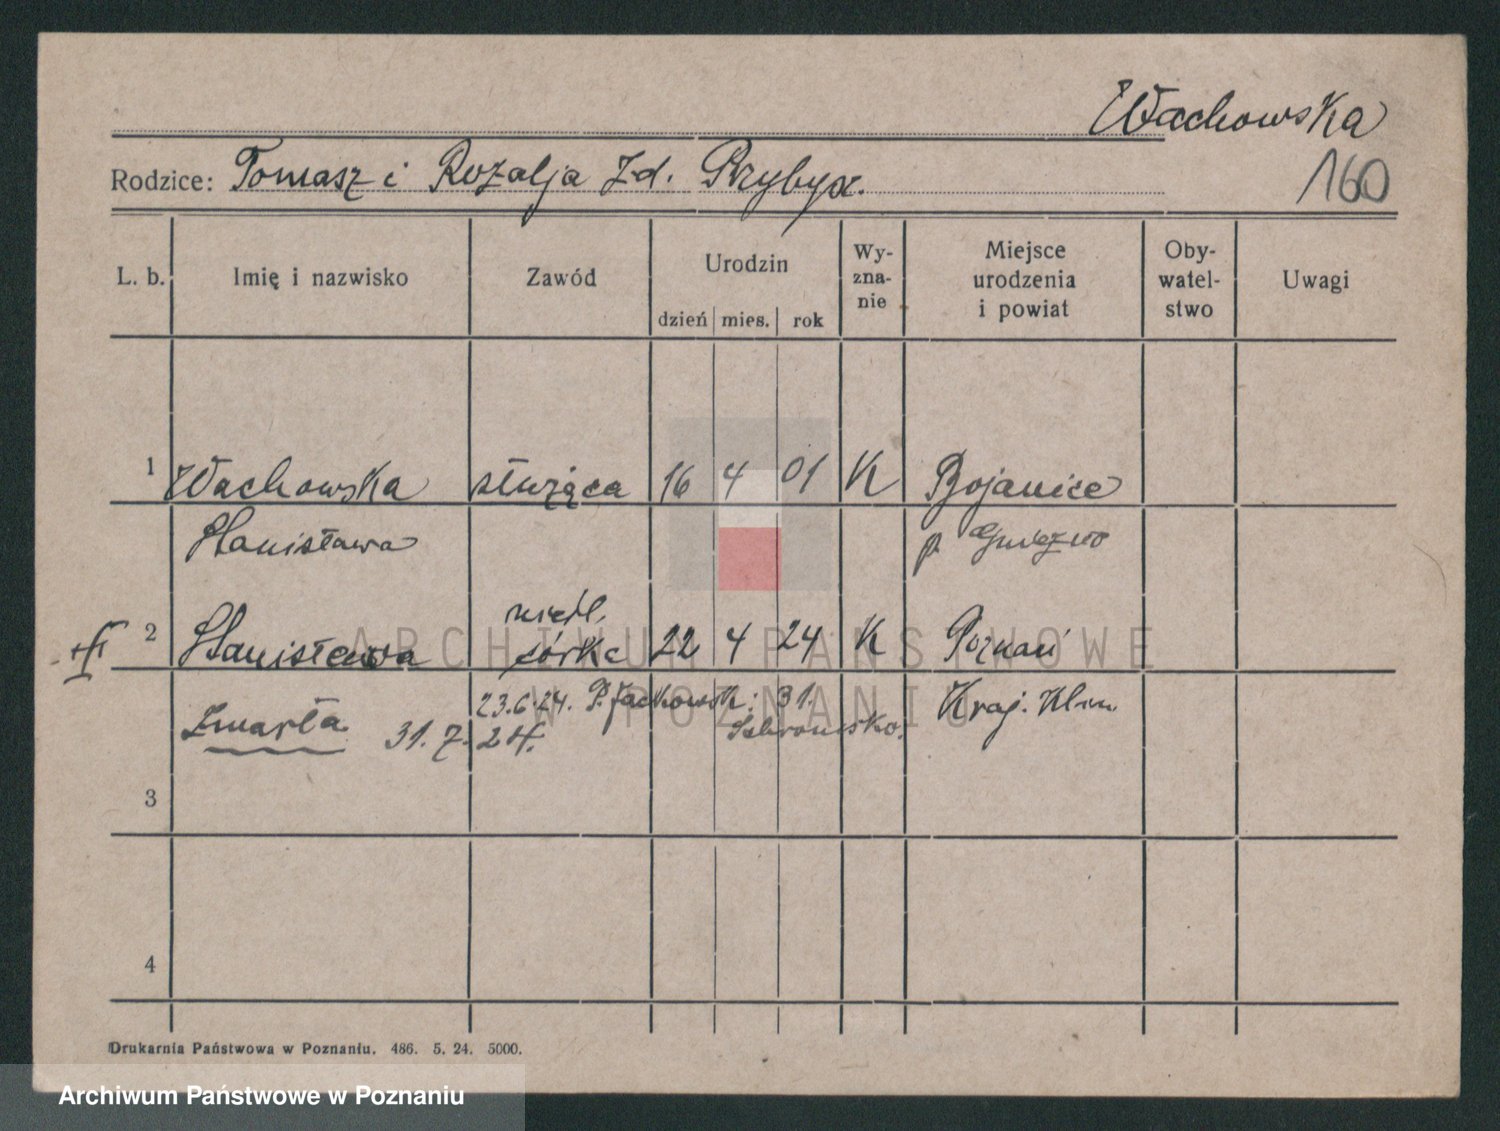 Wachowska
Rodzice: Tomasz i Rozalja zd. Przybyx.
160
L. b. Imię i nazwisko Zawód Urodzin Wy- zna- nie Miejsce urodzenia i powiat Oby- watel- stwo Uwagi
dzień mies. rok
1 Wachowska służąca 16 4 01 K Bojanice
Stanisława p.
nieśl.
2 Stanisława córka 22 4 24 K Poznań
ARCHIWUM PAŃSTWOWE
W POZNANIU
23.6.24. P. Jackowsk: 31.
Zmarła 31. 7. 24. Schronisko.
3
4
Drukarnia Państwowa w Poznaniu. 486. 5. 24. 5000.
Archiwum Państwowe w Poznaniu